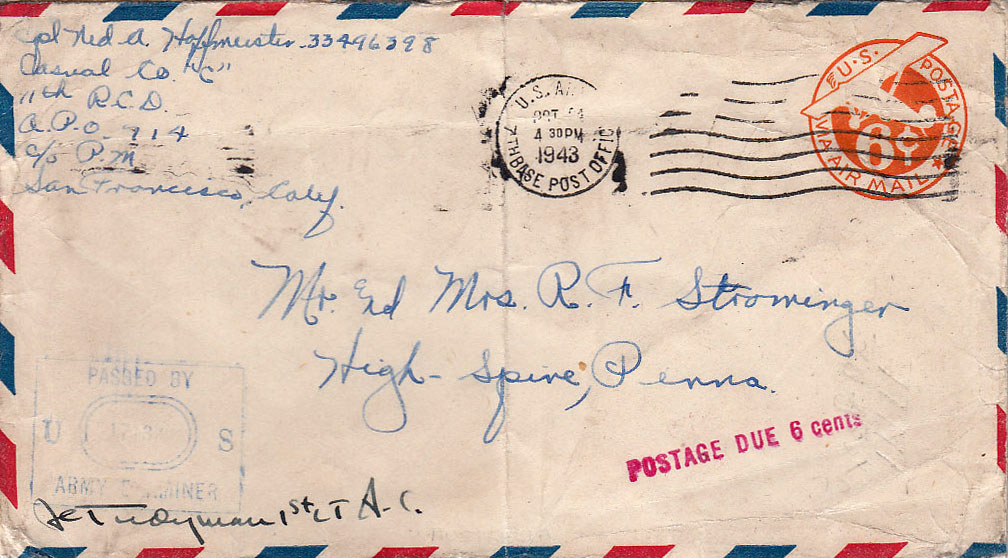 Cpl Ned A. Hoffmeister 33496398
Casual Co "C"
11th R.C.D.
A.P.O. 714
c/o P.M
San Francisco, Calif.
U.S. AR
OCT
4 30 PM
1943
BASE POST OFFIC
U.S. POSTAGE
6¢
VIA AIR MAIL
Mr. End Mrs. R. F. Strominger
High-Spire, Penna.
POSTAGE DUE 6 cents
PASSED BY
U S
ARMY EXAMINER
1st LT A-C.